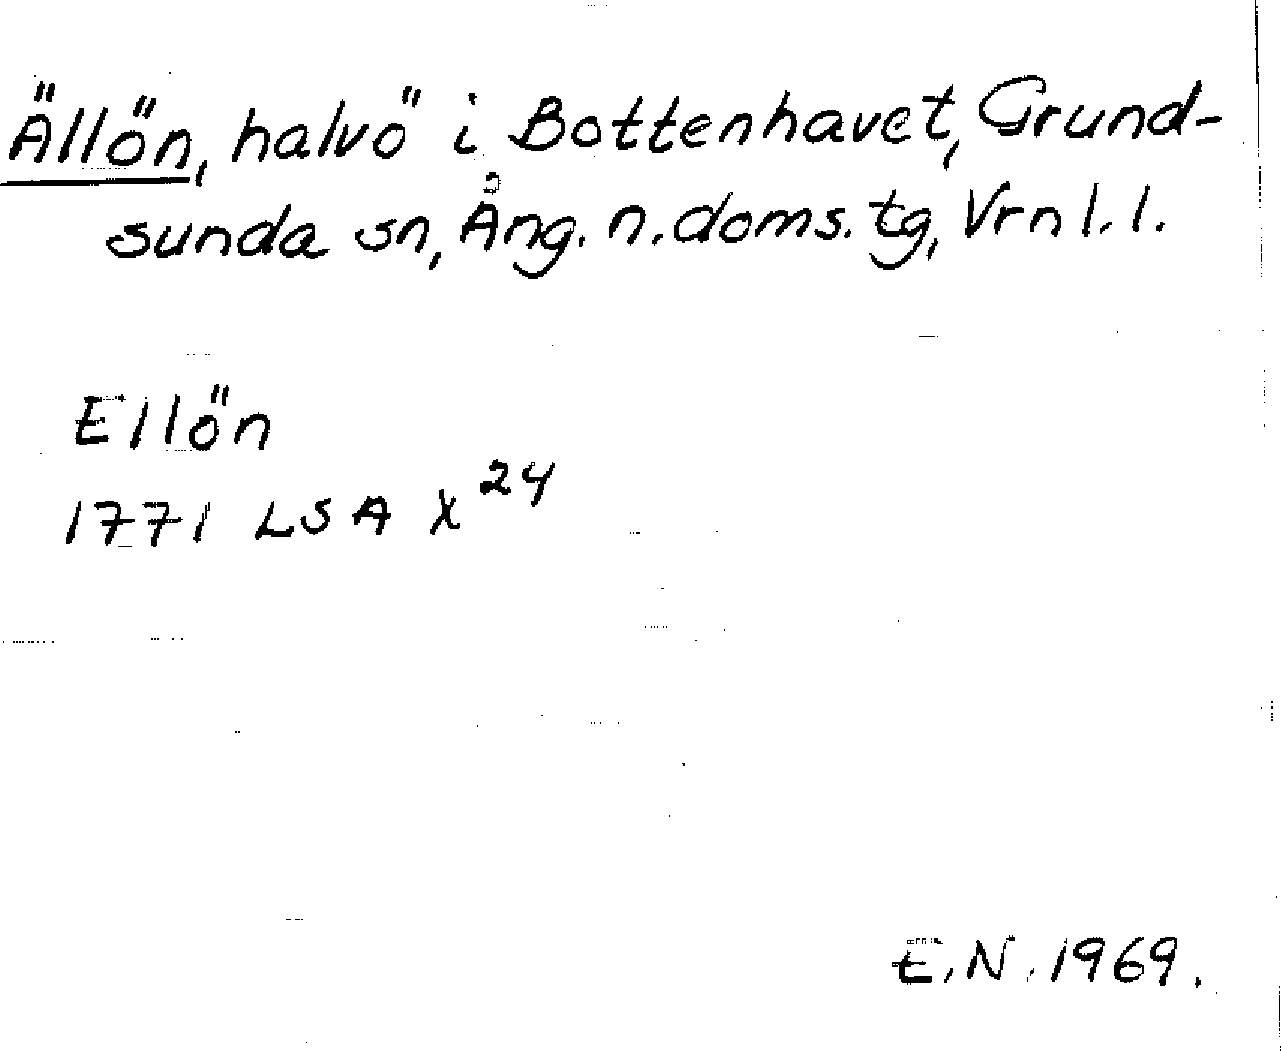 Ällön, halvö i Bottenhavet, Grund-
sunda sn, Ång. n. doms. tg, Vrnl. l.
Ellön
1771 LSA X 24
E. N. 1969.